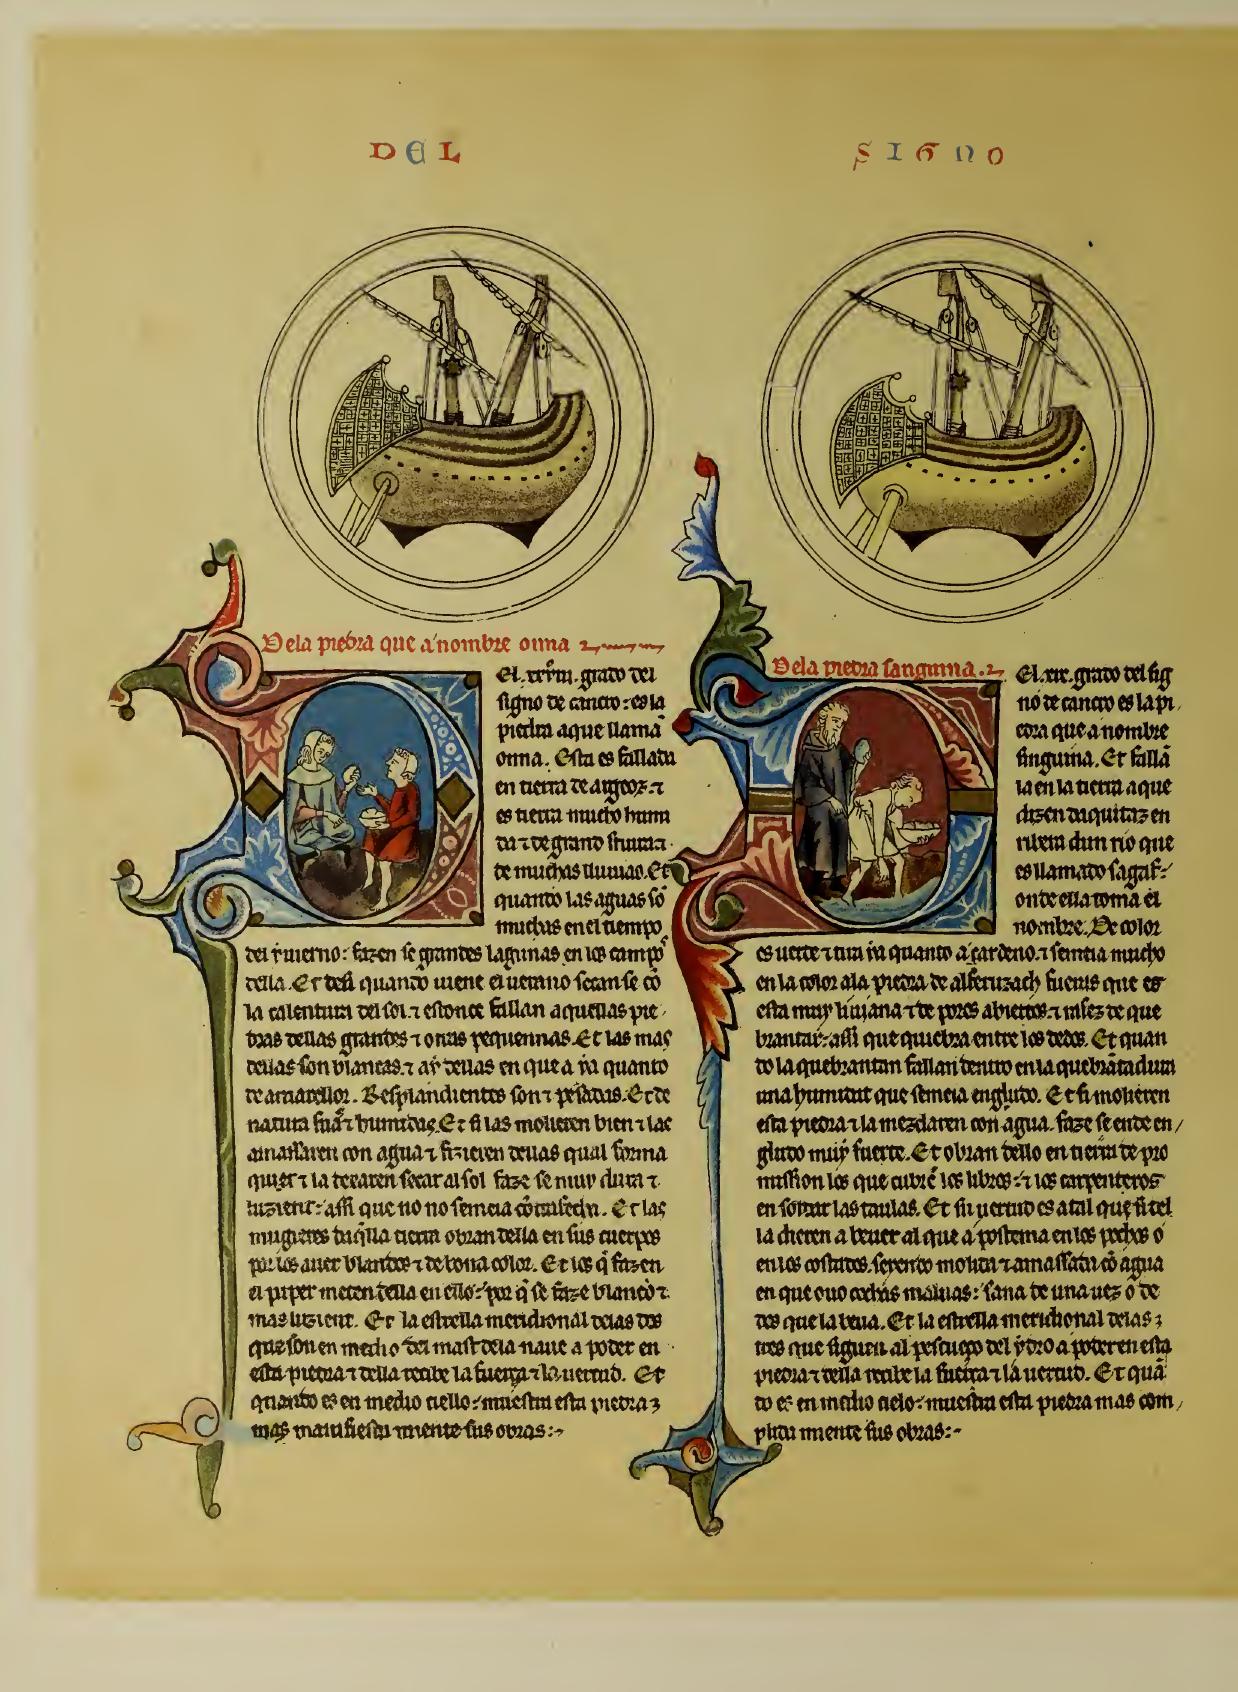 DEL
SIGNO
Dela piedra que a nombre onna
El. xxviii. grado del
signo de cancro: es la
piedra a que llamã
onna. Esta es fallada
en tierra de
es tierra mucho humi
da ⁊ de grand ⁊
de muchas lluuias. Et
quando las aguas sõ
muchas en el tiempo
del yuierno: fazen se grandes lagunas en los campos
della. Et desi quando uiene el uerano secan se cõ
la calentura del sol. ⁊ estonce fallan aquellas pie
dras dellas grandes ⁊ otras pequennas. Et las mas
dellas son blancas. ⁊ ay dellas en que a ya quanto
de amarellor. Resplandientes son ⁊ pesadas. Et de
natura fria ⁊ humidas. Et si las molieren bien ⁊ las
amassaren con agua ⁊ fizieren dellas qual forma
quier ⁊ la dexaren secar al sol faze se muy dura ⁊
luzient: assi que no no semeia cõtrafecha. Et las
mugieres daq̃lla tierra obran della en sus cuerpos
por los auer blandos ⁊ de bona color. Et los q̃ fazen
el paper meten della en ello: por q̃ se faze blanco ⁊
mas luzient. Et la estrella meridional delas dos
que son en medio del mast dela naue a poder en
esta piedra ⁊ della recibe la fuerça ⁊ la uertud. Et
quando es en medio cielo: muestra esta piedra
mas manifiesta miente sus obras:-
Dela piedra sanguina.
El. xix. grado del sig
no de cancro es la pi
edra que a nombre
singuina. Et fallã
la en la tierra a que
dizen daquitaz en
ribera dun rio que
es llamado sagaf:
onde ella toma el
nombre. De color
es uerde ⁊ tira ya quanto a cardeno. ⁊ semeia mucho
en la color ala piedra de alferuzach fueras que es
esta muy liuiana ⁊ de poros abiertos. ⁊ rafez de que
brantar: assi que quiebra entre los dedos. Et quan
do la quebrantan fallan dentro en la quebrãtadura
una humidat que semeia engludo. Et si molieren
esta piedra ⁊ la mezclaren con agua. faze se ende en
gludo muy fuerte. Et obran dello en tierra de pro
mission los que cubrẽ los libros: ⁊ los carpenteros
en soldar las taulas. Et su uertud es atal que si del
la dieren a beuer al que a postema en los pechos o
en los costados. seyendo molida ⁊ amassada cõ agua
en que ouo cochas maluas: sana de una uez o de
dos que la beua. Et la estrella meridional delas
tres que siguen al pescueço del ydro a poder en esta
piedra ⁊ della recibe la fuerça ⁊ la uertud. Et quã
do es en medio cielo: muestra esta piedra mas com
plida miente sus obras:-